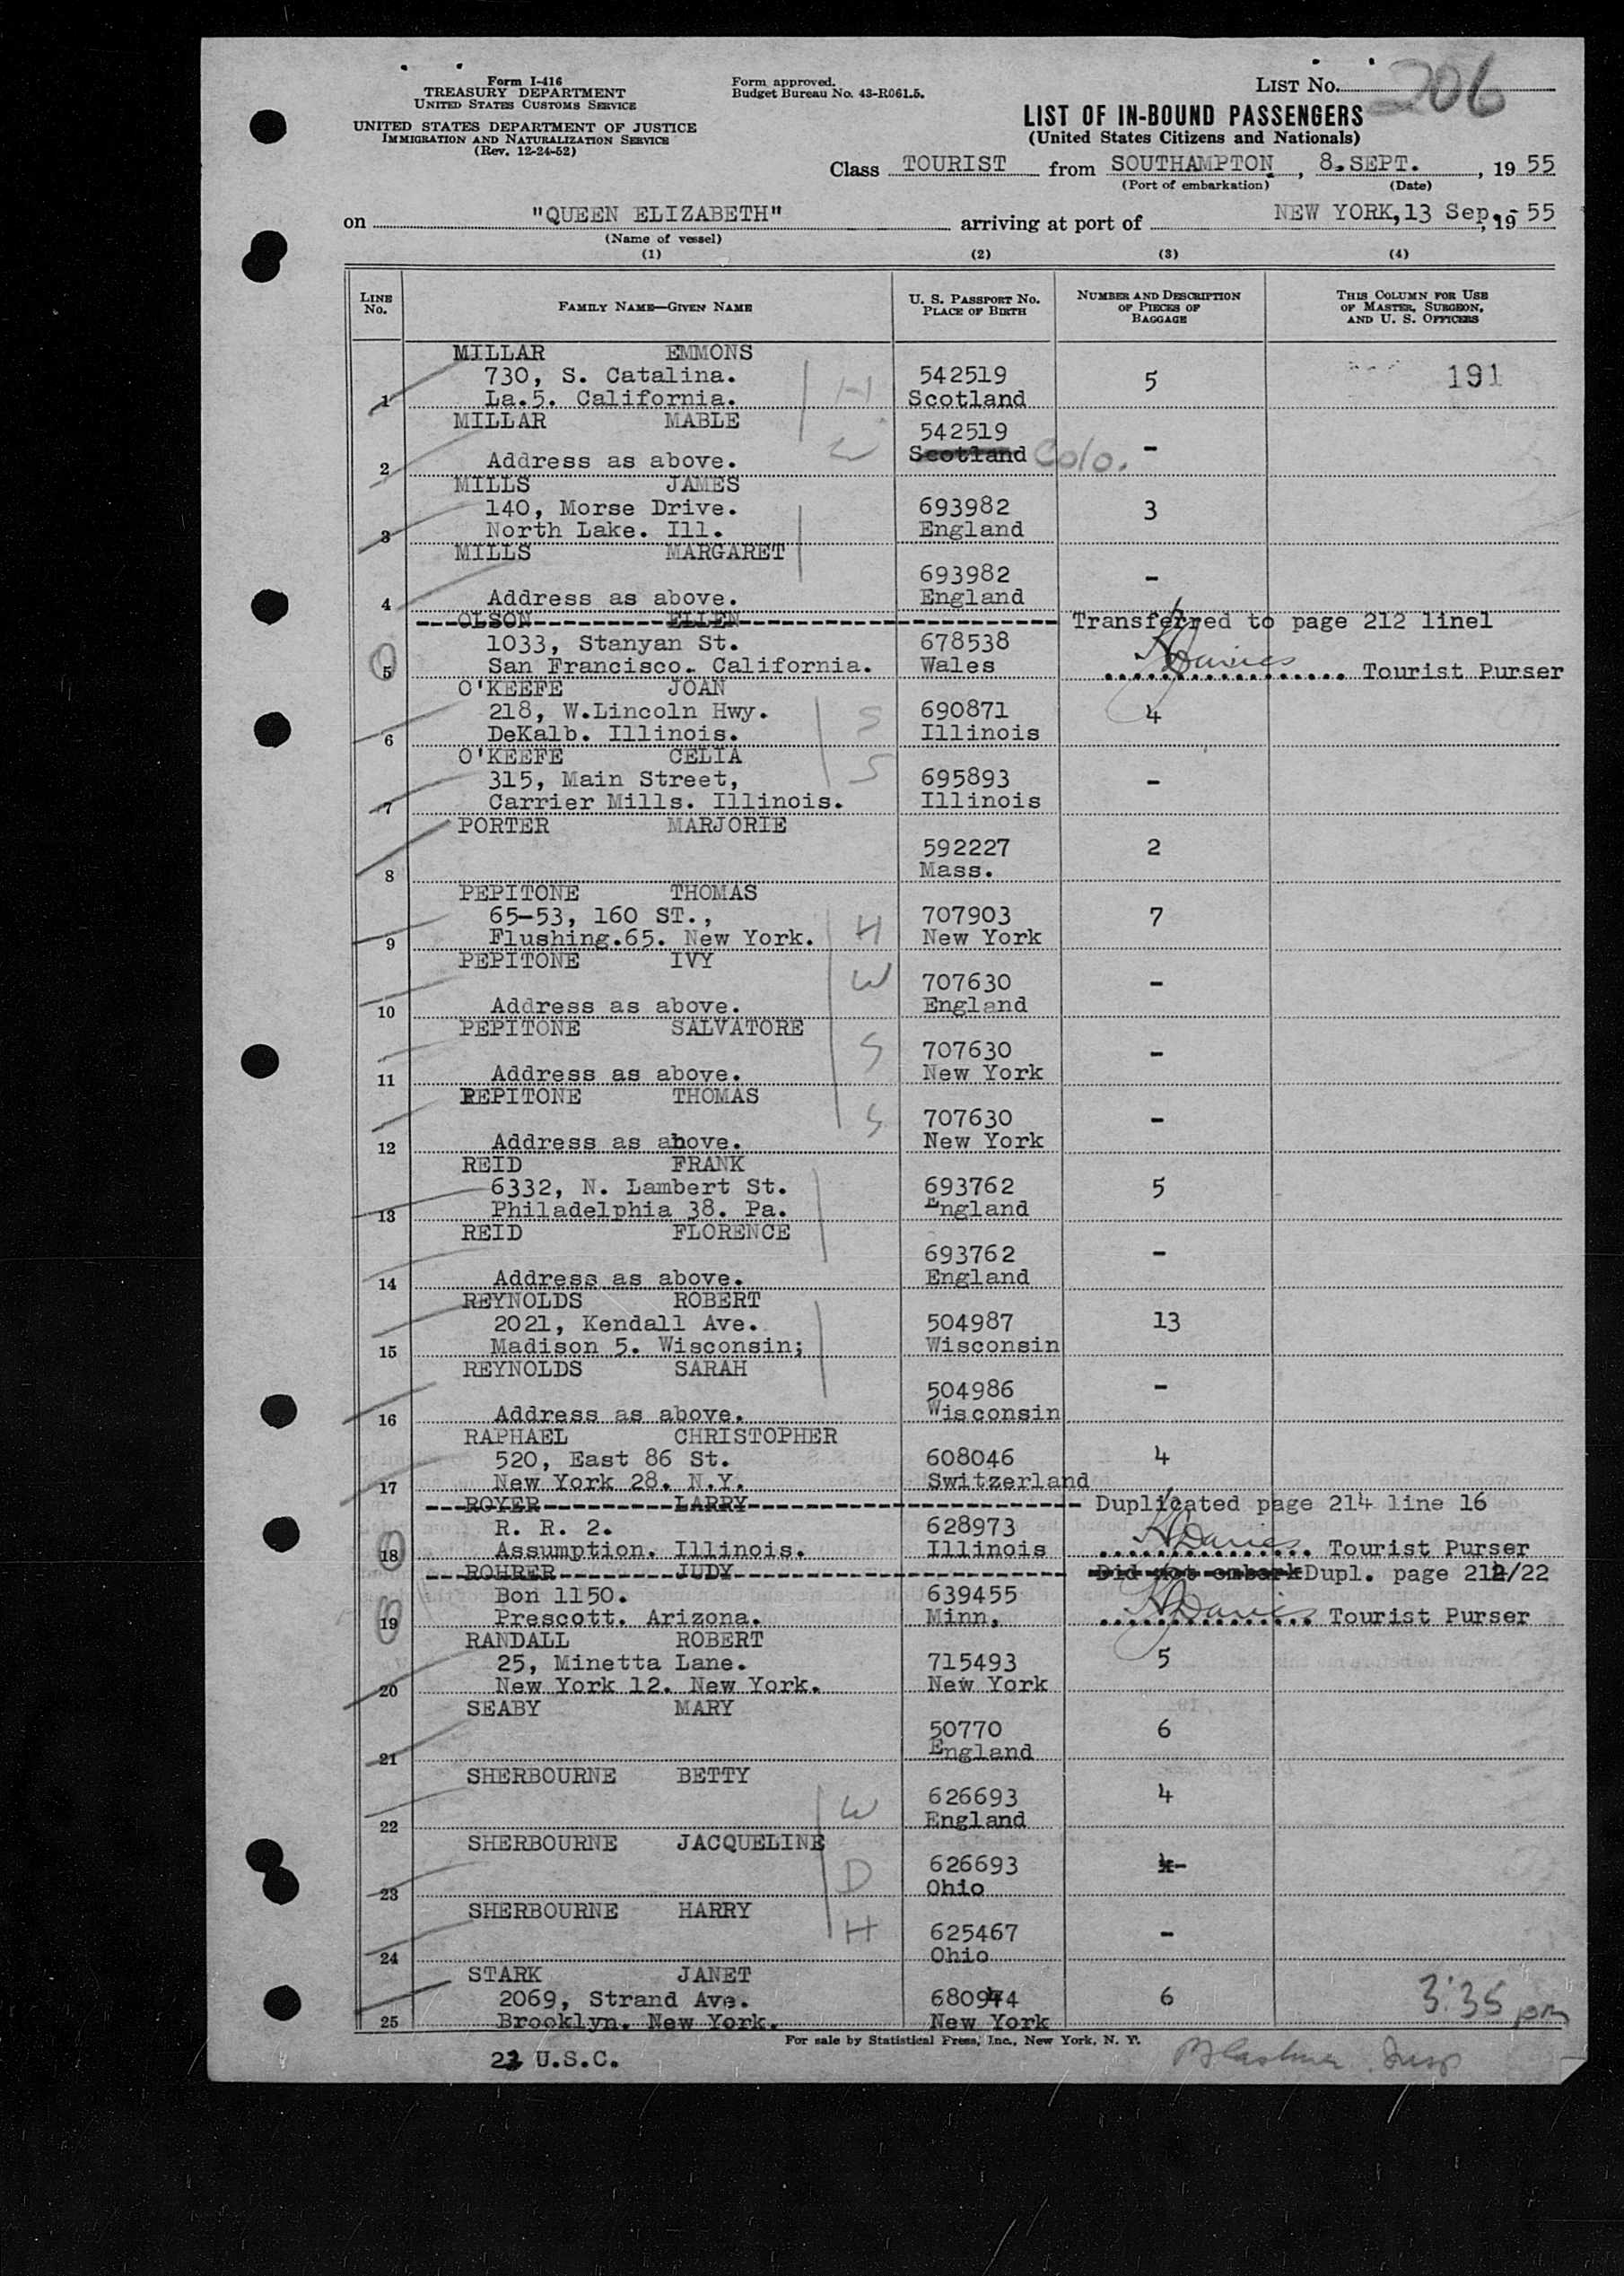 Form I-416
TREASURY DEPARTMENT
UNITED STATES CUSTOMS SERVICE
UNITED STATES DEPARTMENT OF JUSTICE
IMMIGRATION AND NATURALIZATION SERVICE
(Rev. 12-24-52)
Form approved.
Budget Bureau No. 43-R061.5.
LIST No. 206
LIST OF IN-BOUND PASSENGERS
(United States Citizens and Nationals)
Class TOURIST from SOUTHAMPTON, 8.SEPT., 19 55
(Port of embarkation) (Date)
on "QUEEN ELIZABETH" arriving at port of NEW YORK, 13 Sep., 19 55
(Name of vessel)
(1) (2) (3) (4)
LINE No. FAMILY NAME—GIVEN NAME U. S. PASSPORT No. PLACE OF BIRTH NUMBER AND DESCRIPTION OF PIECES OF BAGGAGE THIS COLUMN FOR USE OF MASTER, SURGEON, AND U. S. OFFICERS
MILLAR EMMONS
730, S. Catalina. 542519 5 191
1 La.5. California. H Scotland
MILLAR MABLE
W 542519 -
2 Address as above. Scotland Colo.
MILLS JAMES
140, Morse Drive. 693982 3
3 North Lake. Ill. England
MILLS MARGARET
693982 -
4 Address as above. England
OLSON ELLEN Transferred to page 212 line1
1033, Stanyan St. 678538
5 San Francisco. California. Wales KDavies Tourist Purser
O'KEEFE JOAN
218, W.Lincoln Hwy. S 690871 4
6 DeKalb. Illinois. Illinois
O'KEEFE CELIA
315, Main Street, S 695893 -
7 Carrier Mills. Illinois. Illinois
PORTER MARJORIE
592227 2
8 Mass.
PEPITONE THOMAS
65-53, 160 ST., 707903 7
9 Flushing.65. New York. H New York
PEPITONE IVY
W 707630 -
10 Address as above. England
PEPITONE SALVATORE
S 707630 -
11 Address as above. New York
PEPITONE THOMAS
S 707630 -
12 Address as above. New York
REID FRANK
6332, N. Lambert St. 693762 5
13 Philadelphia 38. Pa. England
REID FLORENCE
693762 -
14 Address as above. England
REYNOLDS ROBERT
2021, Kendall Ave. 504987 13
15 Madison 5. Wisconsin; Wisconsin
REYNOLDS SARAH
504986 -
16 Address as above. Wisconsin
RAPHAEL CHRISTOPHER
520, East 86 St. 608046 4
17 New York 28. N.Y. Switzerland
ROYER LARRY Duplicated page 214 line 16
R. R. 2. 628973
18 Assumption. Illinois. Illinois KDavies Tourist Purser
ROHRER JUDY Did not embark Dupl. page 212/22
Bon 1150. 639455
19 Prescott. Arizona. Minn, KDavies Tourist Purser
RANDALL ROBERT
25, Minetta Lane. 715493 5
20 New York 12. New York. New York
SEABY MARY
50770 6
21 England
SHERBOURNE BETTY
W 626693 4
22 England
SHERBOURNE JACQUELINE
D 626693 -
23 Ohio
SHERBOURNE HARRY
H 625467 -
24 Ohio
STARK JANET
2069, Strand Ave. 680944 6 3:35 pm
25 Brooklyn. New York. New York
For sale by Statistical Press, Inc., New York, N. Y.
22 U.S.C. Insp